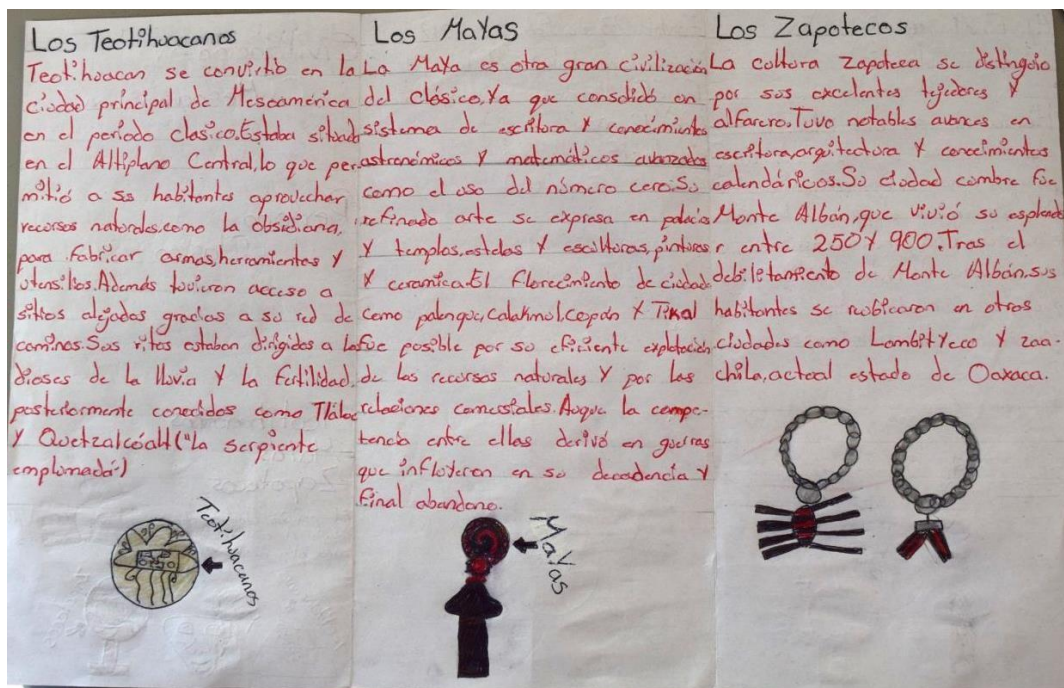 Los Teotihuacanos
Teotihuacan se convirtió en la
ciudad principal de Mesoamérica
en el periodo clasico. Estaba situad
en el Altiplano Central, lo que per
mitió a ss habitantes aprovechar
recursos naturales como la obsidiana,
para fabricar armas, herramientas y
utensilios. Además tuvieron acceso a
sitios alejados gracias a su red de
caminos. Sus ritos estaban dirigidos a la
dioses de la lluvia y la fertilidad,
posteriormente conocidos como Tláloc
y Quetzalcóatl ("La serpiente
emplumada")
Teotihuacanos
Los Mayas
La Maya es otra gran civilización
del clásico, ya que consolidó un
sistema de escritura y conocimientos
astronómicos y matemáticos avanzados
como el uso del número cero. Su
refinado arte se expresa en palacios
y templos, estelas y esculturas, pinturas
y ceramica. El florecimiento de ciudad
como palenque, calakmul, copán y Tikal
fue posible por su eficiente explotación
de los recursos naturales y por las
relaciones comessiales. Auque la compe-
tencia entre ellas derivó en guerras
que influyeron en su decadencia y
final abandono.
Mayas
Los Zapotecos
La cultura zapoteca se distinguio
por sus excelentes tejedores y
alfarero. Tuvo notables avances en
escritura, arquitectura y conocimientos
calendáricos. Su ciudad cumbre fue
Monte Albán, que vivió su esplendo
r entre 250 y 900. Tras el
debiletamiento de Monte Albán, sus
habitantes se reubicaron en otros
ciudades como Lambityeco y zaa-
chila, actual estado de Oaxaca.